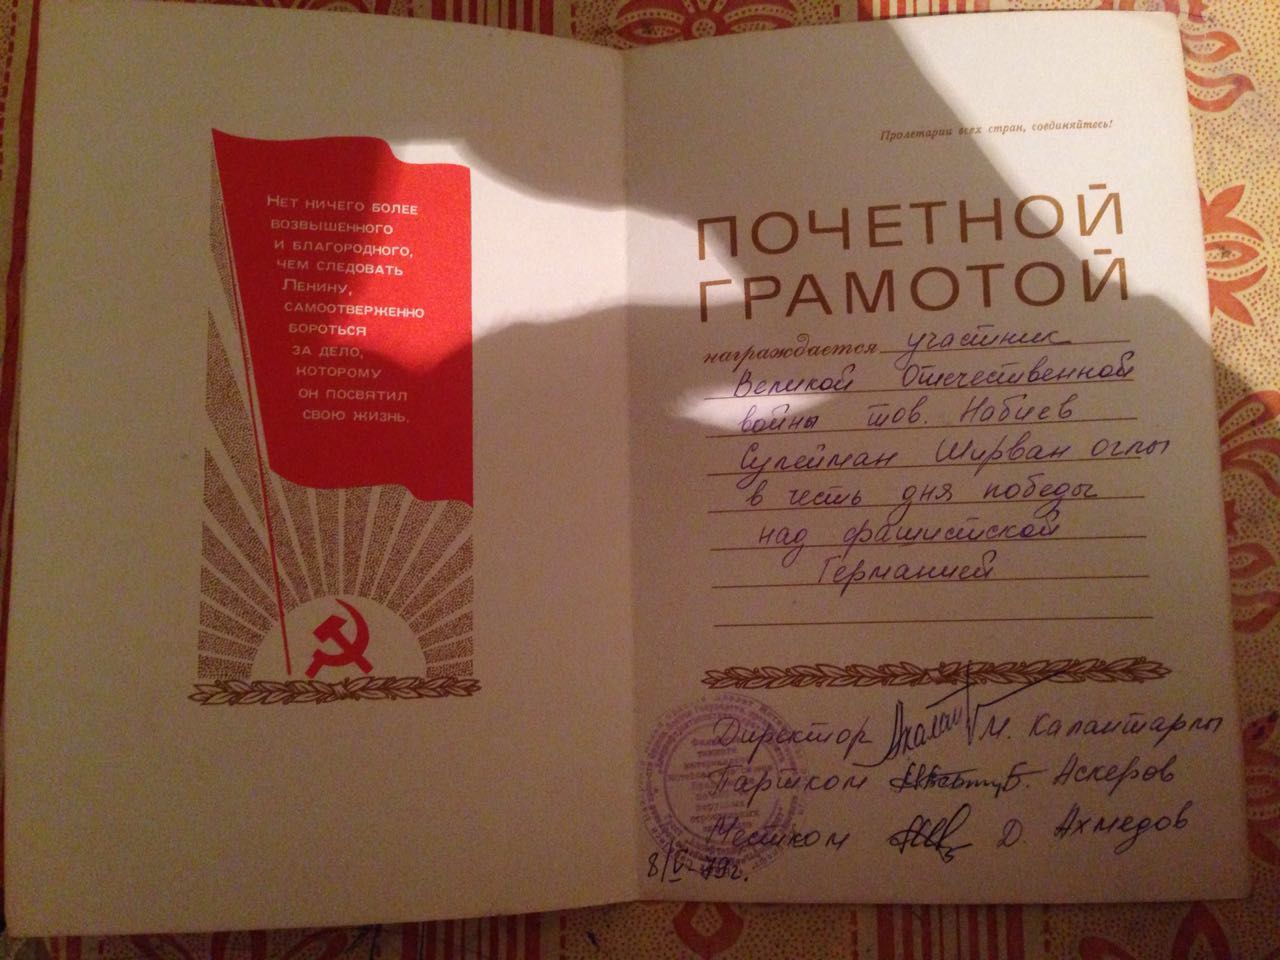 Нет ничего более
возвышенного
и благородного,
чем следовать
Ленину,
самоотверженно
бороться
за дело,
которому
он посвятил
свою жизнь.
Пролетарии всех стран, соединяйтесь!
ПОЧЕТНОЙ
ГРАМОТОЙ
награждается участник
Великой Отечественной
войны тов. Набиев
Сулейман Ширван оглы
в честь дня победы
над фашистской
Германией
Директор М. Калантарлы
Партком Б. Аскеров
Местком Д. Ахмедов
8/V-79г.